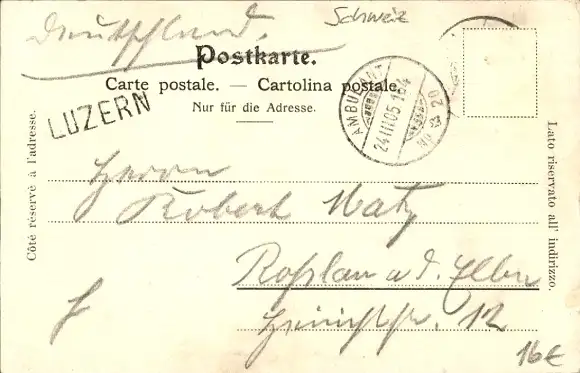 Deutschland.
Schweiz
Postkarte.
Carte postale. — Cartolina postale.
Nur für die Adresse.
LUZERN
AMBULANT
24 III 05
No 20
Côté réservé à l'adresse.
Lato riservato all' indirizzo.
Herrn
Robert Matz
Roßlau a. d. Elbe
12
16€